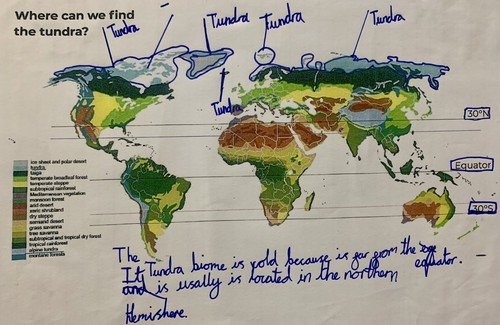 Where can we find
the tundra?
Tundra
Tundra
Tundra
Tundra
Tundra
30°N
Equator
30°S
ice sheet and polar desert
tundra
taiga
temperate broadleaf forest
temperate steppe
subtropical rainforest
Mediterranean vegetation
monsoon forest
arid desert
xeric shrubland
dry steppe
semiarid desert
grass savanna
tree savanna
subtropical and tropical dry forest
tropical rainforest
alpine tundra
montane forests
The Tundra biome is cold because is far from the equator.
It and is usally is located in the northern
Hemishere